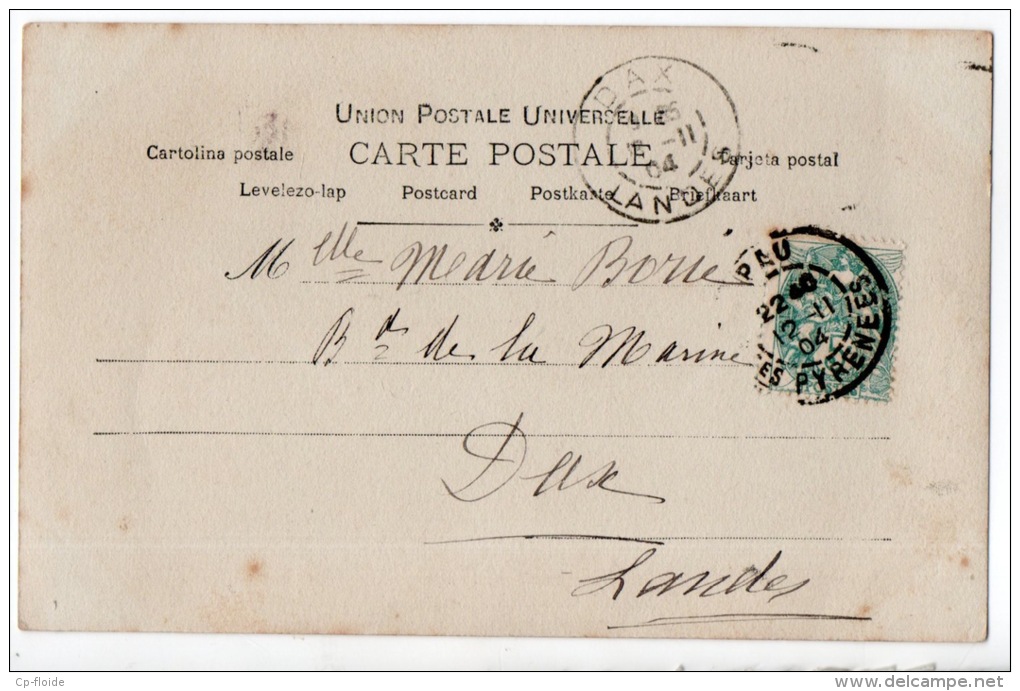 DAX
11
04
LANDES
UNION POSTALE UNIVERSELLE
Cartolina postale CARTE POSTALE Tarjeta postal
Levelezo-lap Postcard Postkarte Briefkaart
PAU
22
12-11
04
ES PYRENEES
Melle Marie Borie
Bd de la Marine
Dax
Landes
Cp-floide
www.delcampe.net